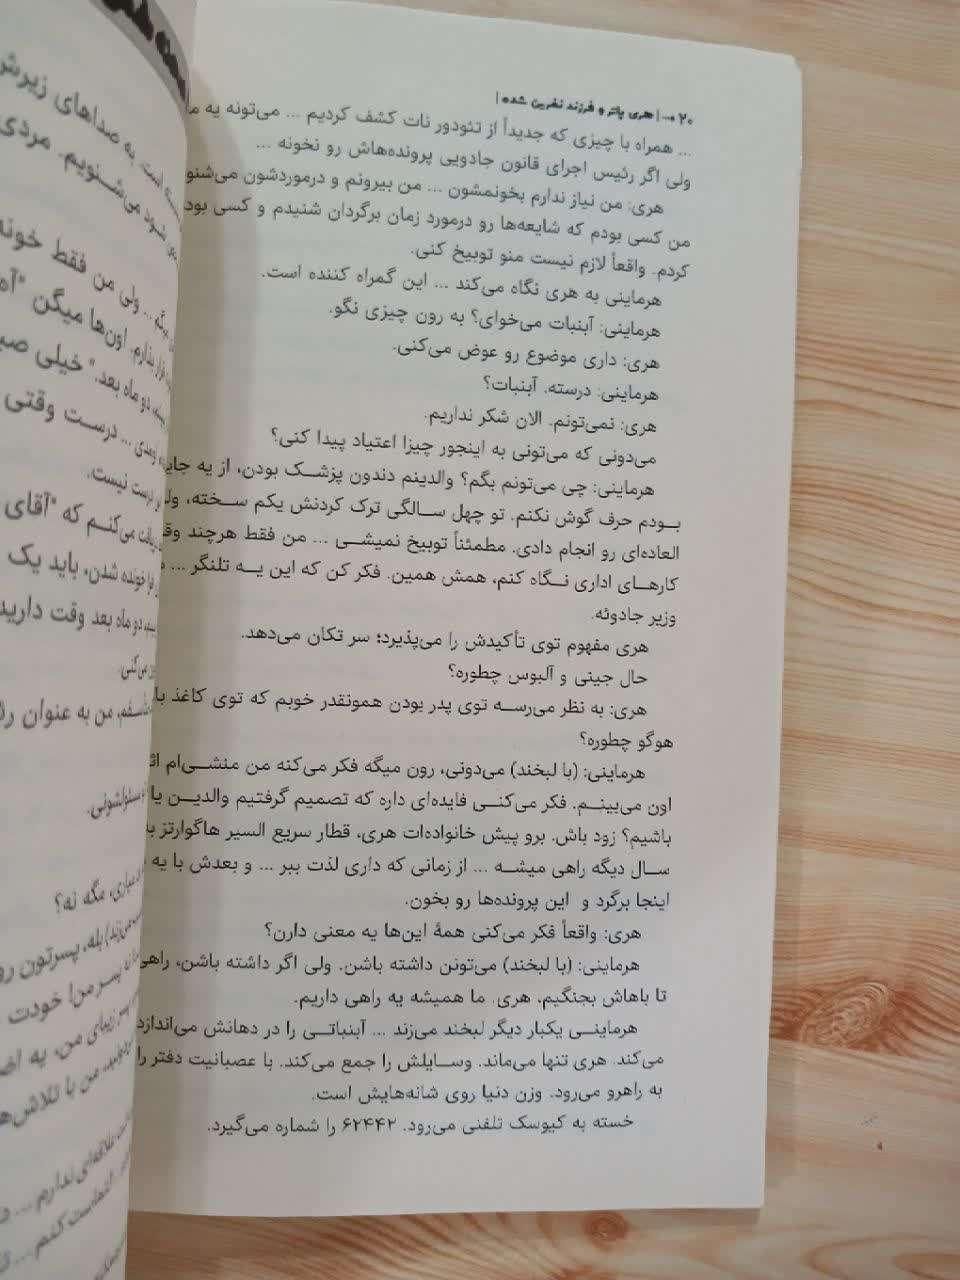 ۲۰ ⟶ | هری پاتر و فرزند نفرین شده |
... همراه با چیزی که جدیداً از تئودور نات کشف کردیم ... می‌تونه یه
ولی اگر رئیس اجرای قانون جادویی پرونده‌هاش رو نخونه ...
هری: من نیاز ندارم بخونمشون ... من بیرونم و درموردشون می‌شنو
من کسی بودم که شایعه‌ها رو درمورد زمان برگردان شنیدم و کسی بود
کردم. واقعاً لازم نیست منو توبیخ کنی.
هرماینی به هری نگاه می‌کند ... این گمراه کننده است.
هرماینی: آبنبات می‌خوای؟ به رون چیزی نگو.
هری: داری موضوع رو عوض می‌کنی.
هرماینی: درسته. آبنبات؟
هری: نمی‌تونم. الان شکر نداریم.
می‌دونی که می‌تونی به اینجور چیزا اعتیاد پیدا کنی؟
هرماینی: چی می‌تونم بگم؟ والدینم دندون پزشک بودن، از یه جایی
بودم حرف گوش نکنم. تو چهل سالگی ترک کردنش یکم سخته، ول
العاده‌ای رو انجام دادی. مطمئناً توبیخ نمیشی ... من فقط هرچند وق
کارهای اداری نگاه کنم، همش همین. فکر کن که این یه تلنگر ...
وزیر جادوئه.
هری مفهوم توی تأکیدش را می‌پذیرد؛ سر تکان می‌دهد.
حال جینی و آلبوس چطوره؟
هری: به نظر می‌رسه توی پدر بودن همونقدر خوبم که توی کاغذ با
هوگو چطوره؟
هرماینی: (با لبخند) می‌دونی، رون میگه فکر می‌کنه من منشی‌ام
اون می‌بینم. فکر می‌کنی فایده‌ای داره که تصمیم گرفتیم والدین یا
باشیم؟ زود باش. برو پیش خانواده‌ات هری، قطار سریع السیر هاگوارتز
سال دیگه راهی میشه ... از زمانی که داری لذت ببر ... و بعدش با یه
اینجا برگرد و این پرونده‌ها رو بخون.
هری: واقعاً فکر می‌کنی همهٔ این‌ها یه معنی دارن؟
هرماینی: (با لبخند) می‌تونن داشته باشن. ولی اگر داشته باشن، راهی
تا باهاش بجنگیم، هری. ما همیشه یه راهی داریم.
هرماینی یکبار دیگر لبخند می‌زند ... آبنباتی را در دهانش می‌اندازد
می‌کند. هری تنها می‌ماند. وسایلش را جمع می‌کند. با عصبانیت دفتر را
به راهرو می‌رود. وزن دنیا روی شانه‌هایش است.
خسته به کیوسک تلفنی می‌رود. ۶۲۴۴۲ را شماره می‌گیرد.
است. به صداهای زیرش
شود می‌شنویم. مردی
... ولی من فقط خونه
اون‌ها میگن "آه
دو ماه بعد." خیلی صب
... درست وقتی
درست نیست.
می‌کنم که "آقای
خونده شدن، باید یک
دو ماه بعد وقت دارید
می‌کنی.
من به عنوان رئ
مگه نه؟
بله، پسرتون رو
پسر من! خودت
زیبای من، یه اض
من با تلاش‌ه
علاقه‌ای ندارم ...
کنم ...